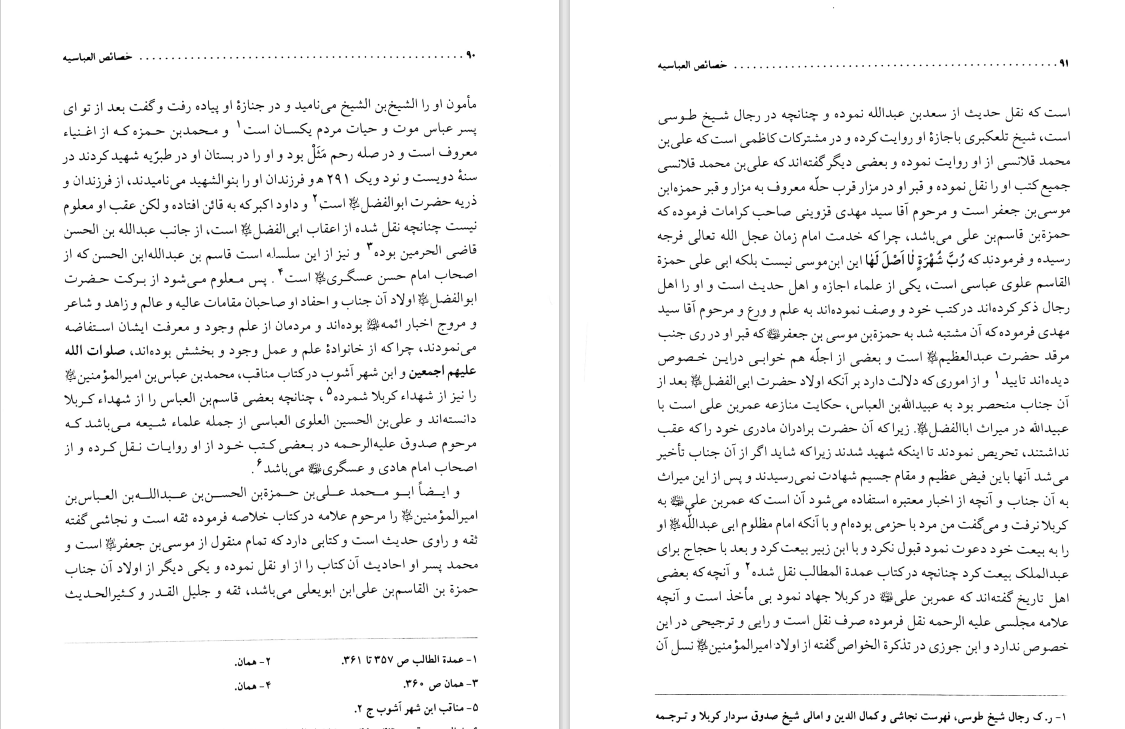 ۹۰ خصائص العباسیه
مأمون او را الشیخ‌بن الشیخ می‌نامید و در جنازهٔ او پیاده رفت و گفت بعد از تو ای
پسر عباس موت و حیات مردم یکسان است۱ و محمدبن حمزه که از اغنیاء
معروف است و در صله رحم مَثَلْ بود و او را در بستان او در طبرّیه شهید کردند در
سنهٔ دویست و نود ویک ۲۹۱ ه‍ و فرزندان او را بنوالشهید می‌نامیدند، از فرزندان و
ذریه حضرت ابوالفضل(ع) است۲ و داود اکبر که به قائن افتاده و لکن عقب او معلوم
نیست چنانچه نقل شده از اعقاب ابی‌الفضل(ع) است، از جانب عبدالله بن الحسن
قاضی الحرمین بوده۳ و نیز از این سلسله است قاسم بن عبدالله‌ابن الحسن که از
اصحاب امام حسن عسگری(ع) است۴. پس معلوم می‌شود از برکت حضرت
ابوالفضل(ع) اولاد آن جناب و احفاد او صاحبان مقامات عالیه و عالم و زاهد و شاعر
و مروج اخبار ائمه(ع) بوده‌اند و مردمان از علم وجود و معرفت ایشان استفاضه
می‌نمودند، چرا که از خانوادهٔ علم و عمل وجود و بخشش بوده‌اند، صلوات الله
علیهم اجمعین و ابن شهر آشوب در کتاب مناقب، محمدبن عباس‌بن امیرالمؤمنین(ع)
را نیز از شهداء کربلا شمرده۵، چنانچه بعضی قاسم‌بن العباس را از شهداء کربلا
دانسته‌اند و علی‌بن الحسین العلوی العباسی از جمله علماء شیعه می‌باشد که
مرحوم صدوق علیه‌الرحمه در بعضی کتب خود از او روایات نقل کرده و از
اصحاب امام هادی و عسگری(ع) می‌باشد۶.
و ایضاً ابو محمد علی‌بن حمزة‌بن الحسن‌بن عبدالله‌بن العباس‌بن
امیرالمؤمنین(ع) را مرحوم علامه در کتاب خلاصه فرموده ثقه است و نجاشی گفته
ثقه و راوی حدیث است و کتابی دارد که تمام منقول از موسی‌بن جعفر(ع) است و
محمد پسر او احادیث آن کتاب را از او نقل نموده و یکی دیگر از اولاد آن جناب
حمزة بن القاسم‌بن علی‌ابن ابویعلی می‌باشد، ثقه و جلیل القدر و کثیرالحدیث
۱- عمدة الطالب ص ۳۵۷ تا ۳۶۱. ۲- همان.
۳- همان ص ۳۶۰. ۴- همان.
۵- مناقب ابن شهر آشوب ج ۲.
۹۱ خصائص العباسیه
است که نقل حدیث از سعدبن عبدالله نموده و چنانچه در رجال شیخ طوسی
است، شیخ تلعکبری باجازهٔ او روایت کرده و در مشترکات کاظمی است که علی‌بن
محمد قلانسی از او روایت نموده و بعضی دیگر گفته‌اند که علی‌بن محمد قلانسی
جمیع کتب او را نقل نموده و قبر او در مزار قرب حلّه معروف به مزار و قبر حمزه‌ابن
موسی‌بن جعفر است و مرحوم آقا سید مهدی قزوینی صاحب کرامات فرموده که
حمزة‌بن قاسم‌بن علی می‌باشد، چرا که خدمت امام زمان عجل الله تعالی فرجه
رسیده و فرمودند که رُبَّ شُهْرَةٍ لٰا اَصْلَ لَهٰا این ابن‌موسی نیست بلکه ابی علی حمزة
القاسم علوی عباسی است، یکی از علماء اجازه و اهل حدیث است و او را اهل
رجال ذکر کرده‌اند در کتب خود و وصف نموده‌اند به علم و ورع و مرحوم آقا سید
مهدی فرموده که آن مشتبه شد به حمزة‌بن موسی بن جعفر(ع) که قبر او در ری جنب
مرقد حضرت عبدالعظیم(ع) است و بعضی از اجلّه هم خوابی دراین خصوص
دیده‌اند تایید۱ و از اموری که دلالت دارد بر آنکه اولاد حضرت ابی‌الفضل(ع) بعد از
آن جناب منحصر بود به عبیدالله‌بن العباس، حکایت منازعه عمربن علی است با
عبیدالله در میراث اباالفضل(ع). زیرا که آن حضرت برادران مادری خود را که عقب
نداشتند، تحریص نمودند تا اینکه شهید شدند زیرا که شاید اگر از آن جناب تأخیر
می‌شد آنها باین فیض عظیم و مقام جسیم شهادت نمی‌رسیدند و پس از این میراث
به آن جناب و آنچه از اخبار معتبره استفاده می‌شود آن است که عمربن علی(ع) به
کربلا نرفت و می‌گفت من مرد با حزمی بوده‌ام و با آنکه امام مظلوم ابی عبداللّه(ع) او
را به بیعت خود دعوت نمود قبول نکرد و با ابن زبیر بیعت کرد و بعد با حجاج برای
عبدالملک بیعت کرد چنانچه در کتاب عمدة المطالب نقل شده۲ و آنچه که بعضی
اهل تاریخ گفته‌اند که عمربن علی(ع) در کربلا جهاد نمود بی مأخذ است و آنچه
علامه مجلسی علیه الرحمه نقل فرموده صرف نقل است و رایی و ترجیحی در این
خصوص ندارد و ابن جوزی در تذکرة الخواص گفته از اولاد امیرالمؤمنین(ع) نسل آن
۱- ر.ک رجال شیخ طوسی، فهرست نجاشی و کمال الدین و امالی شیخ صدوق سردار کربلا و ترجمه